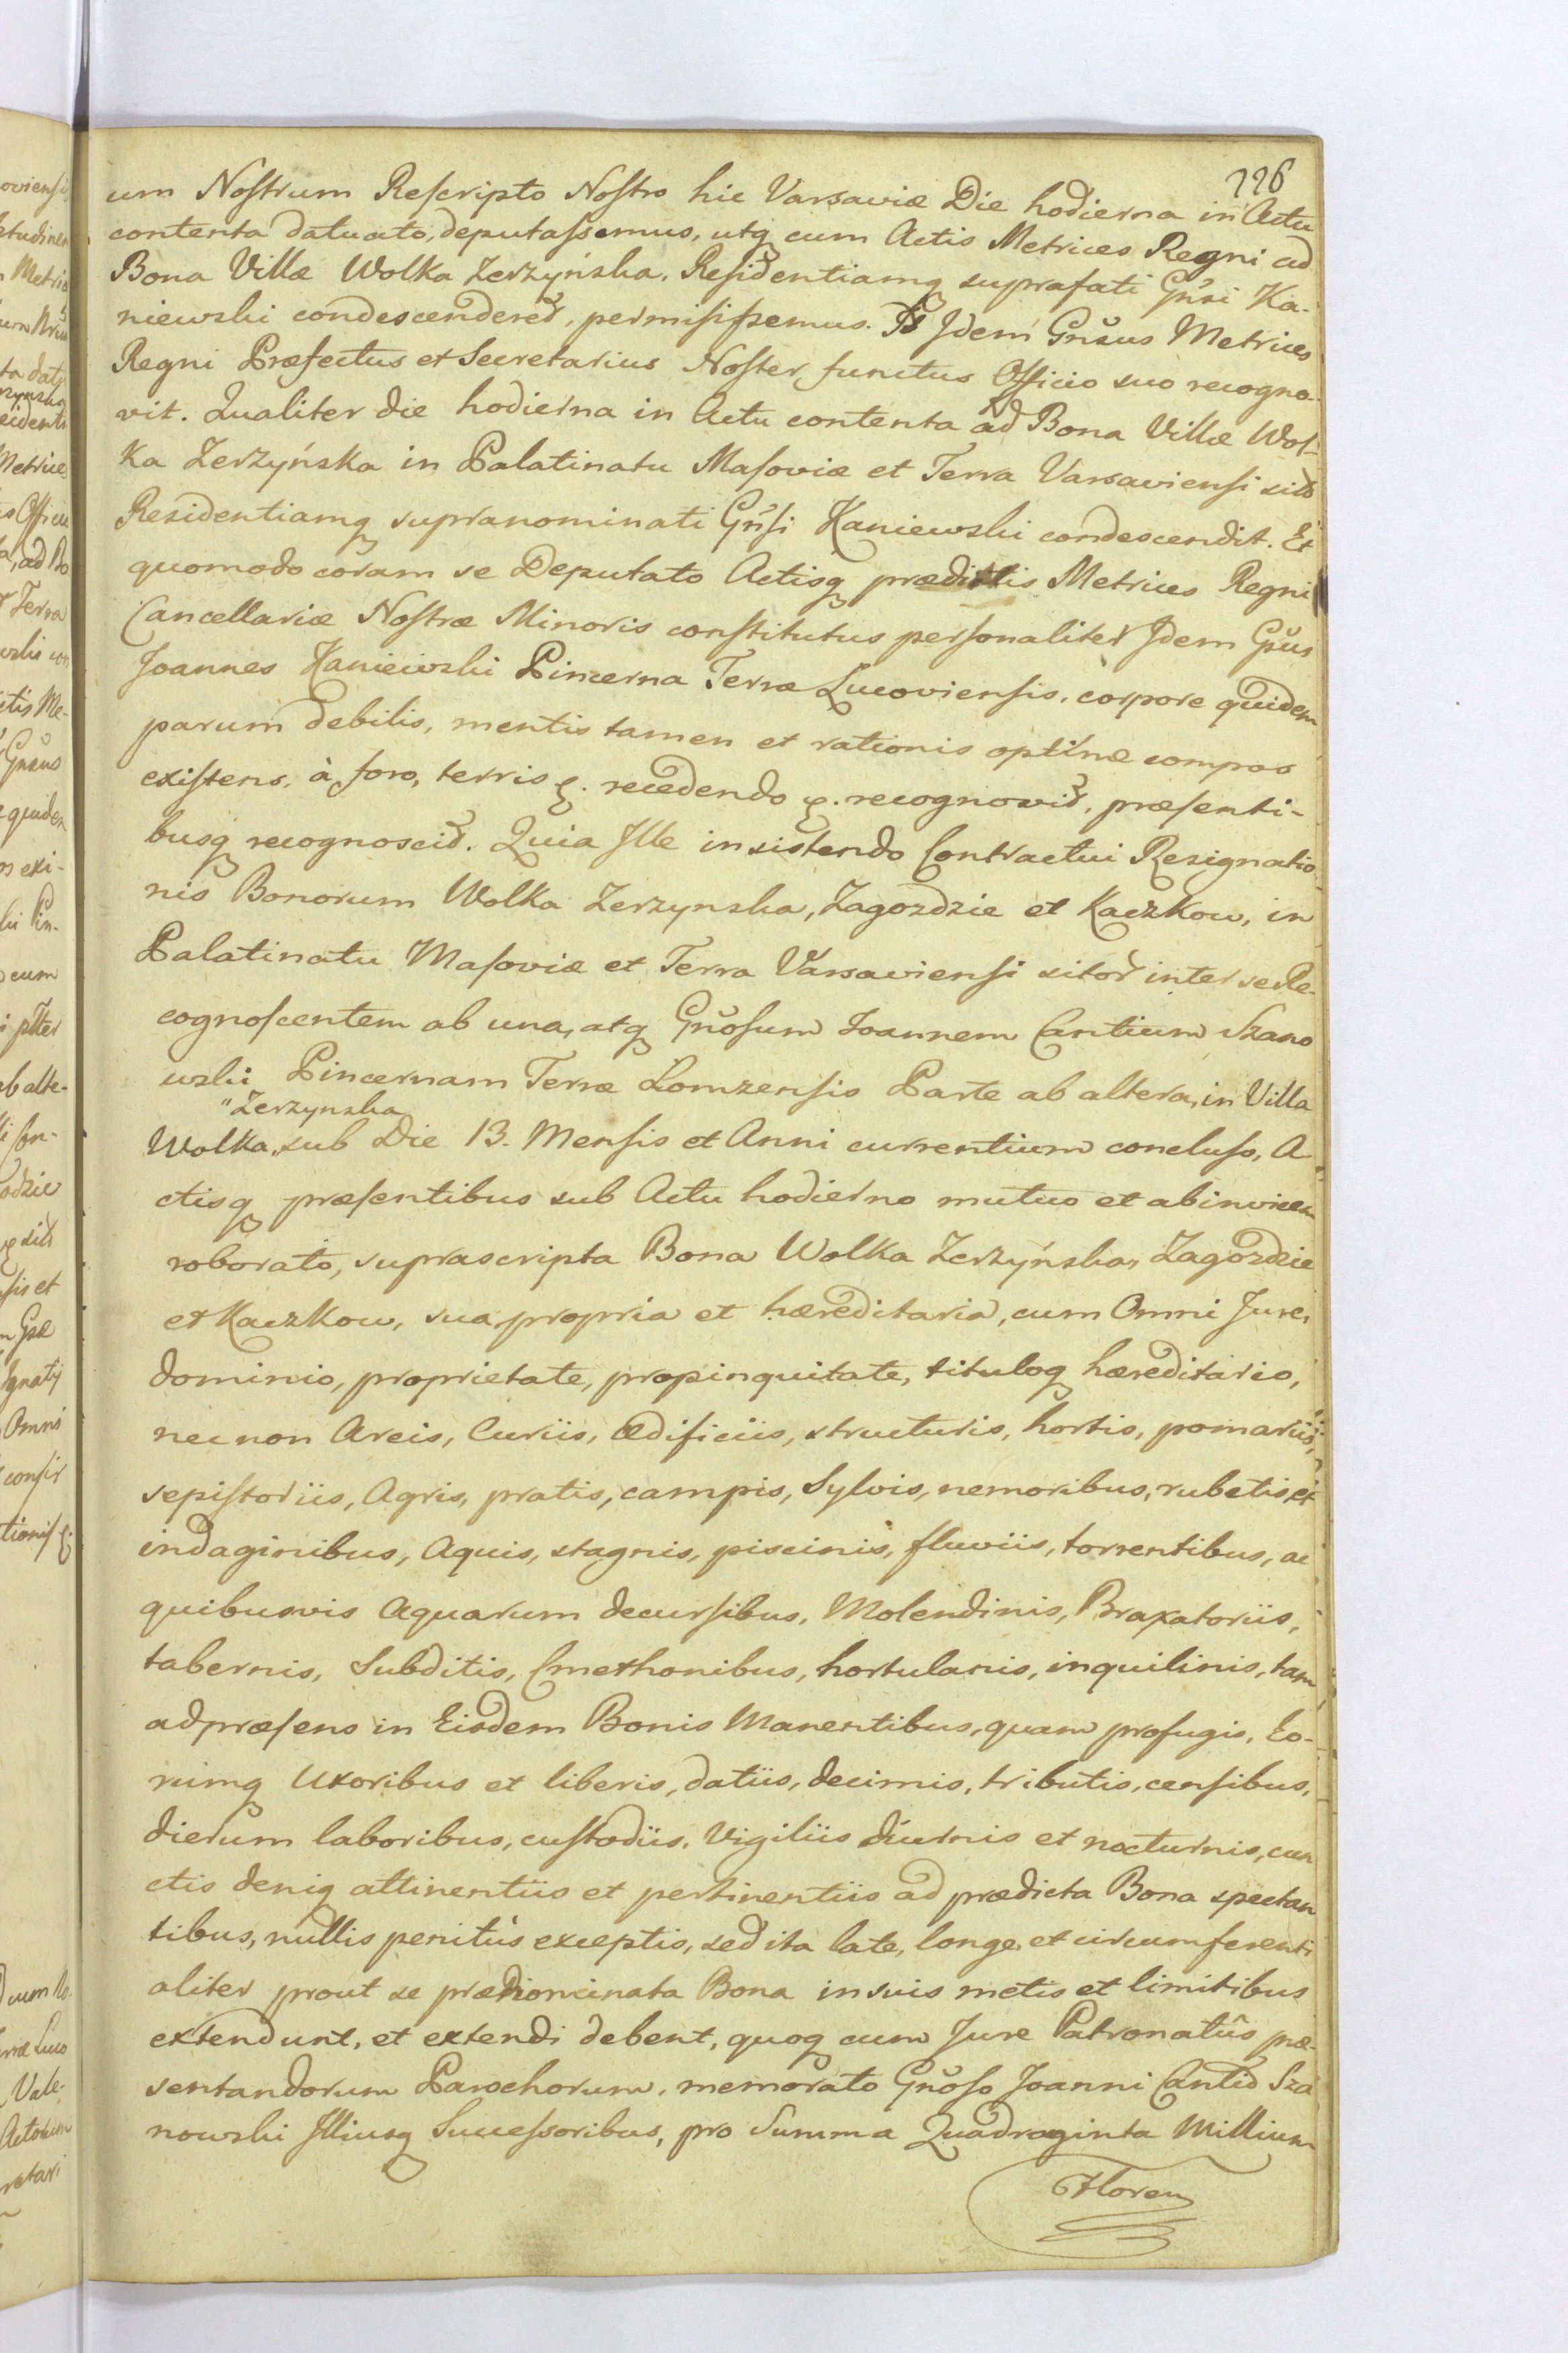 226
um Nostrum Rescripto Nostro hic Varsaviæ Die hodierna in Actu
contenta datuato, deputassemus, utq cum Actis Metrices Regni ad
Bona Villæ Wolka Zerzyńska, Residentiamq suprafati Gnsi Ka-
niewski condescenderet, permisissemus. Is Idem Gnsus Metrices
Regni Præfectus et Secretarius Noster, functus Officio suo recogno-
vit. Qualiter die hodierna in Actu contenta ad Bona Villæ Wol-
ka Zerzyńska in Palatinatu Masoviæ et Terra Varsaviensi sita
Residentiamq supranominati Gnsi Kaniewski condescendit. Et
quomodo coram se Deputato Actisq prædictis Metrices Regni
Cancellariæ Nostræ Minoris constitutus personaliter Idem Gnsus
Joannes Kaniewski Pincerna Terræ Lucoviensis, corpore quidem
parum debilis, mentis tamen et rationis optimæ compos
existens, à foro, terris recedendo recognovit, præsenti-
busq recognoscit. Quia Ille insistendo Contractui Resignatio-
nis Bonorum Wolka Zerzynska, Zagozdzie et Kaczkow, in
Palatinatu Masoviæ et Terra Varsaviensi sitor inter se Re-
cognoscentem ab una, atq Gnosum Joannem Cantium Szano
wski Pincernam Terræ Lomzensis Parte ab altera, in Villa
"Zerzynska
Wolka,, sub Die 13. Mensis et Anni currentium concluso, A-
ctisq præsentibus sub Actu hodierno mutuo et abinvicem
roborato, suprascripta Bona Wolka Zerzyńska, Zagozdzie
et Kaczkow, sua propria et hæreditaria, cum Omni Jure,
dominio, proprietate, propinquitate, tituloq hæreditario,
necnon Areis, Curiis, ædificiis, structuris, hortis, pomariis,
sepistoriis, Agris, pratis, campis, Sylvis, nemoribus, rubetis, et
indaginibus, Aquis, stagnis, piscinis, fluviis, torrentibus, ac
quibusvis Aquarum decursibus, Molendinis, Braxatoriis,
tabernis, Subditis, Cmethonibus, hortulanis, inquilinis, tam
adpræsens in Eisdem Bonis Manentibus, quam profugis, Eo-
rumq Uxoribus et liberis, datiis, decimis, tributis, censibus,
dierum laboribus, custodiis, Vigiliis diurnis et nocturnis, cun
ctis deniq attinentiis et pertinentiis ad prædicta Bona spectan
tibus, nullis penitùs exceptis, sed ita late, longe, et circumferenti
aliter prout se prænominata Bona in suis metis et limitibus
extendunt, et extendi debent, quoq cum Jure Patronatûs præ-
sentandorum Parochorum, memorato Gnoso Joanni Cantio Sza
nowski Illiusq Successoribus, pro Summa Quadraginta Millium
Floren